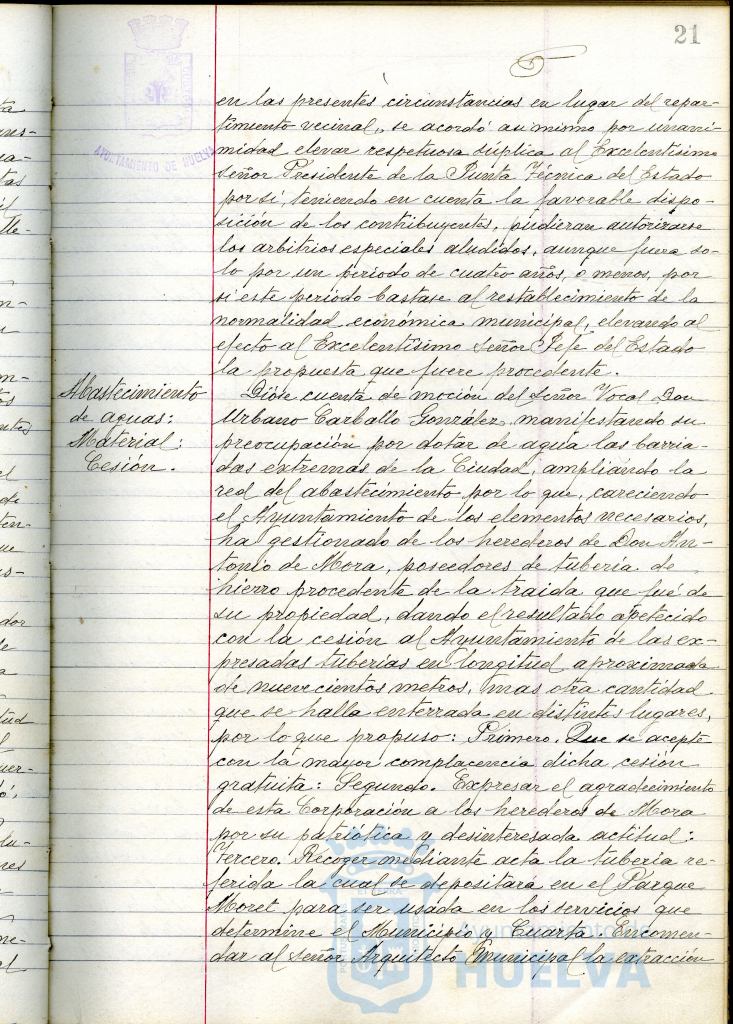 21
AYUNTAMIENTO DE HUELVA
en las presentes circunstancias en lugar del repar-
timiento vecinal, se acordó asimismo por unani-
midad elevar respetuosa súplica al Excelentísimo
Señor Presidente de la Junta Técnica del Estado
por si, teniendo en cuenta la favorable dispo-
sición de los contribuyentes, pudieran autorizarse
los arbitrios especiales aludidos, aunque fuera so-
lo por un período de cuatro años, o menos, por
si este período bastase al restablecimiento de la
normalidad económica municipal, elevando al
efecto al Excelentísimo Señor Jefe del Estado
la propuesta que fuere procedente.
Abastecimiento
de aguas:
Material:
Cesión.
Dióse cuenta de moción del Señor Vocal Don
Urbano Carballo González, manifestando su
preocupación por dotar de agua las barria-
das extremas de la Ciudad, ampliando la
red del abastecimiento por lo que, careciendo
el Ayuntamiento de los elementos necesarios,
ha gestionado de los herederos de Don An-
tonio de Mora, poseedores de tubería de
hierro procedente de la traida que fué de
su propiedad, dando el resultado apetecido
con la cesión al Ayuntamiento de las ex-
presadas tuberías en longitud aproximada
de nuevecientos metros, mas otra cantidad
que se halla enterrada en distintos lugares,
por lo que propuso: Primero. Que se acepte
con la mayor complacencia dicha cesión
gratuita: Segundo. Expresar el agradecimiento
de esta Corporación a los herederos de Mora
por su patriótica y desinteresada actitud:
Tercero. Recoger mediante acta la tubería re-
ferida la cual se depositará en el Parque
Moret para ser usada en los servicios que
determine el Municipio y Cuarto. Encomen-
dar al Señor Arquitecto Municipal la extracción
Ayuntamiento de
HUELVA